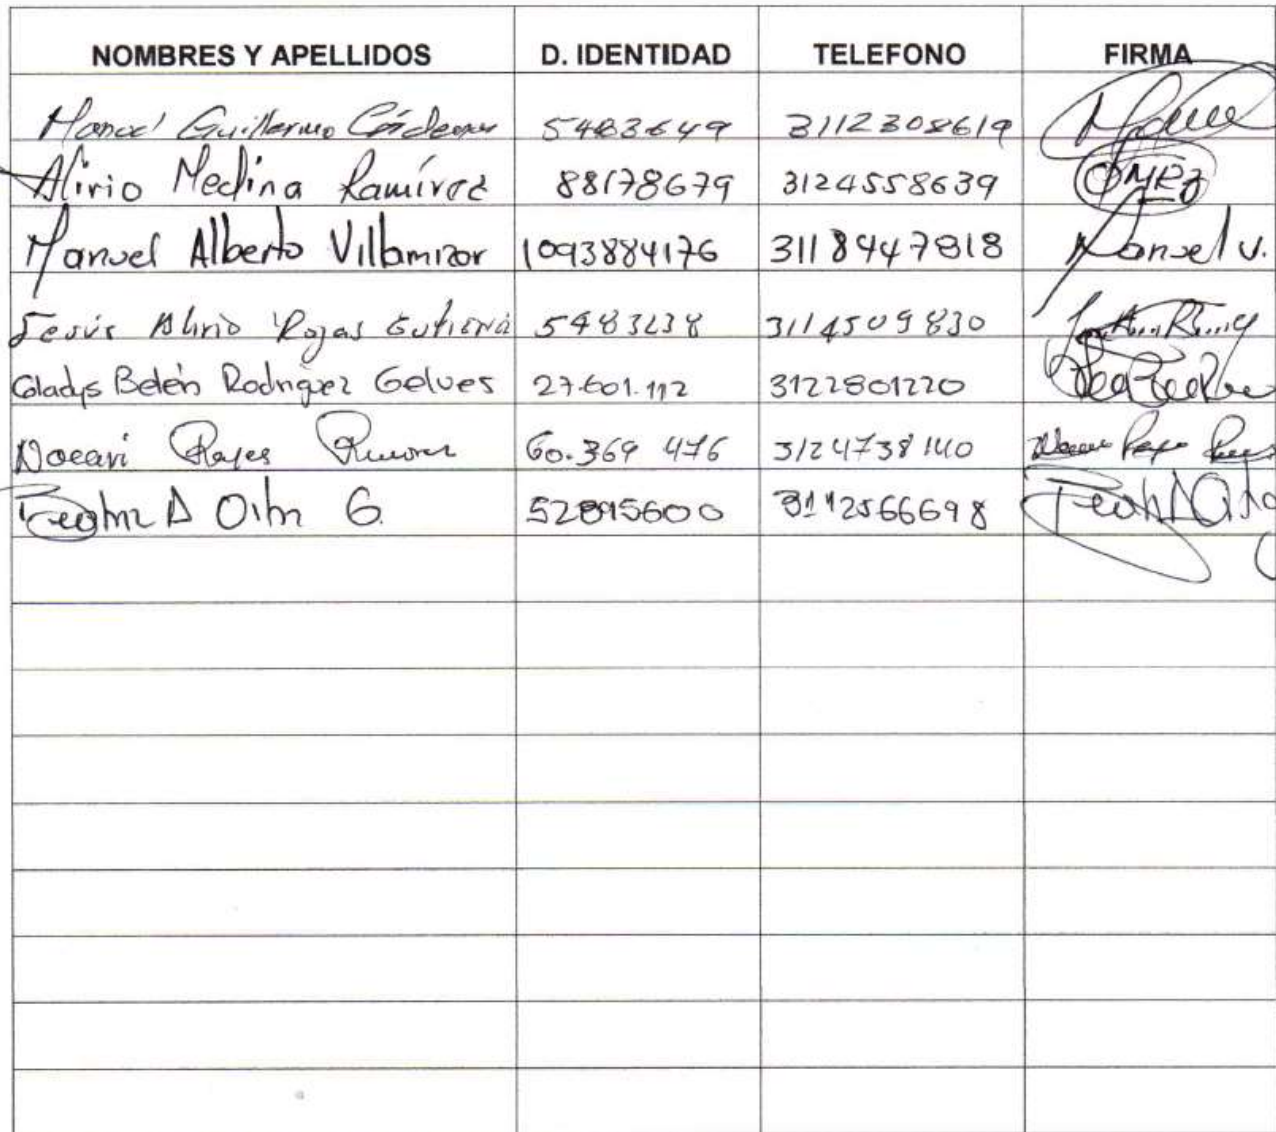 NOMBRES Y APELLIDOS D. IDENTIDAD TELEFONO FIRMA
Manuel Guillermo Cárdenas 5483649 3112308619
Alirio Medina Ramírez 88178679 3124558639 OMRZ
Manuel Alberto Villamizar 1093884176 3118447818 Manuel V.
Jesús Alirio Rojas 5483238 3114509830
Gladys Belén Rodríguez Gelves 27.601.112 3122801220
Reyes 60.369 476 3124738140
A G. 52895600 3112566698